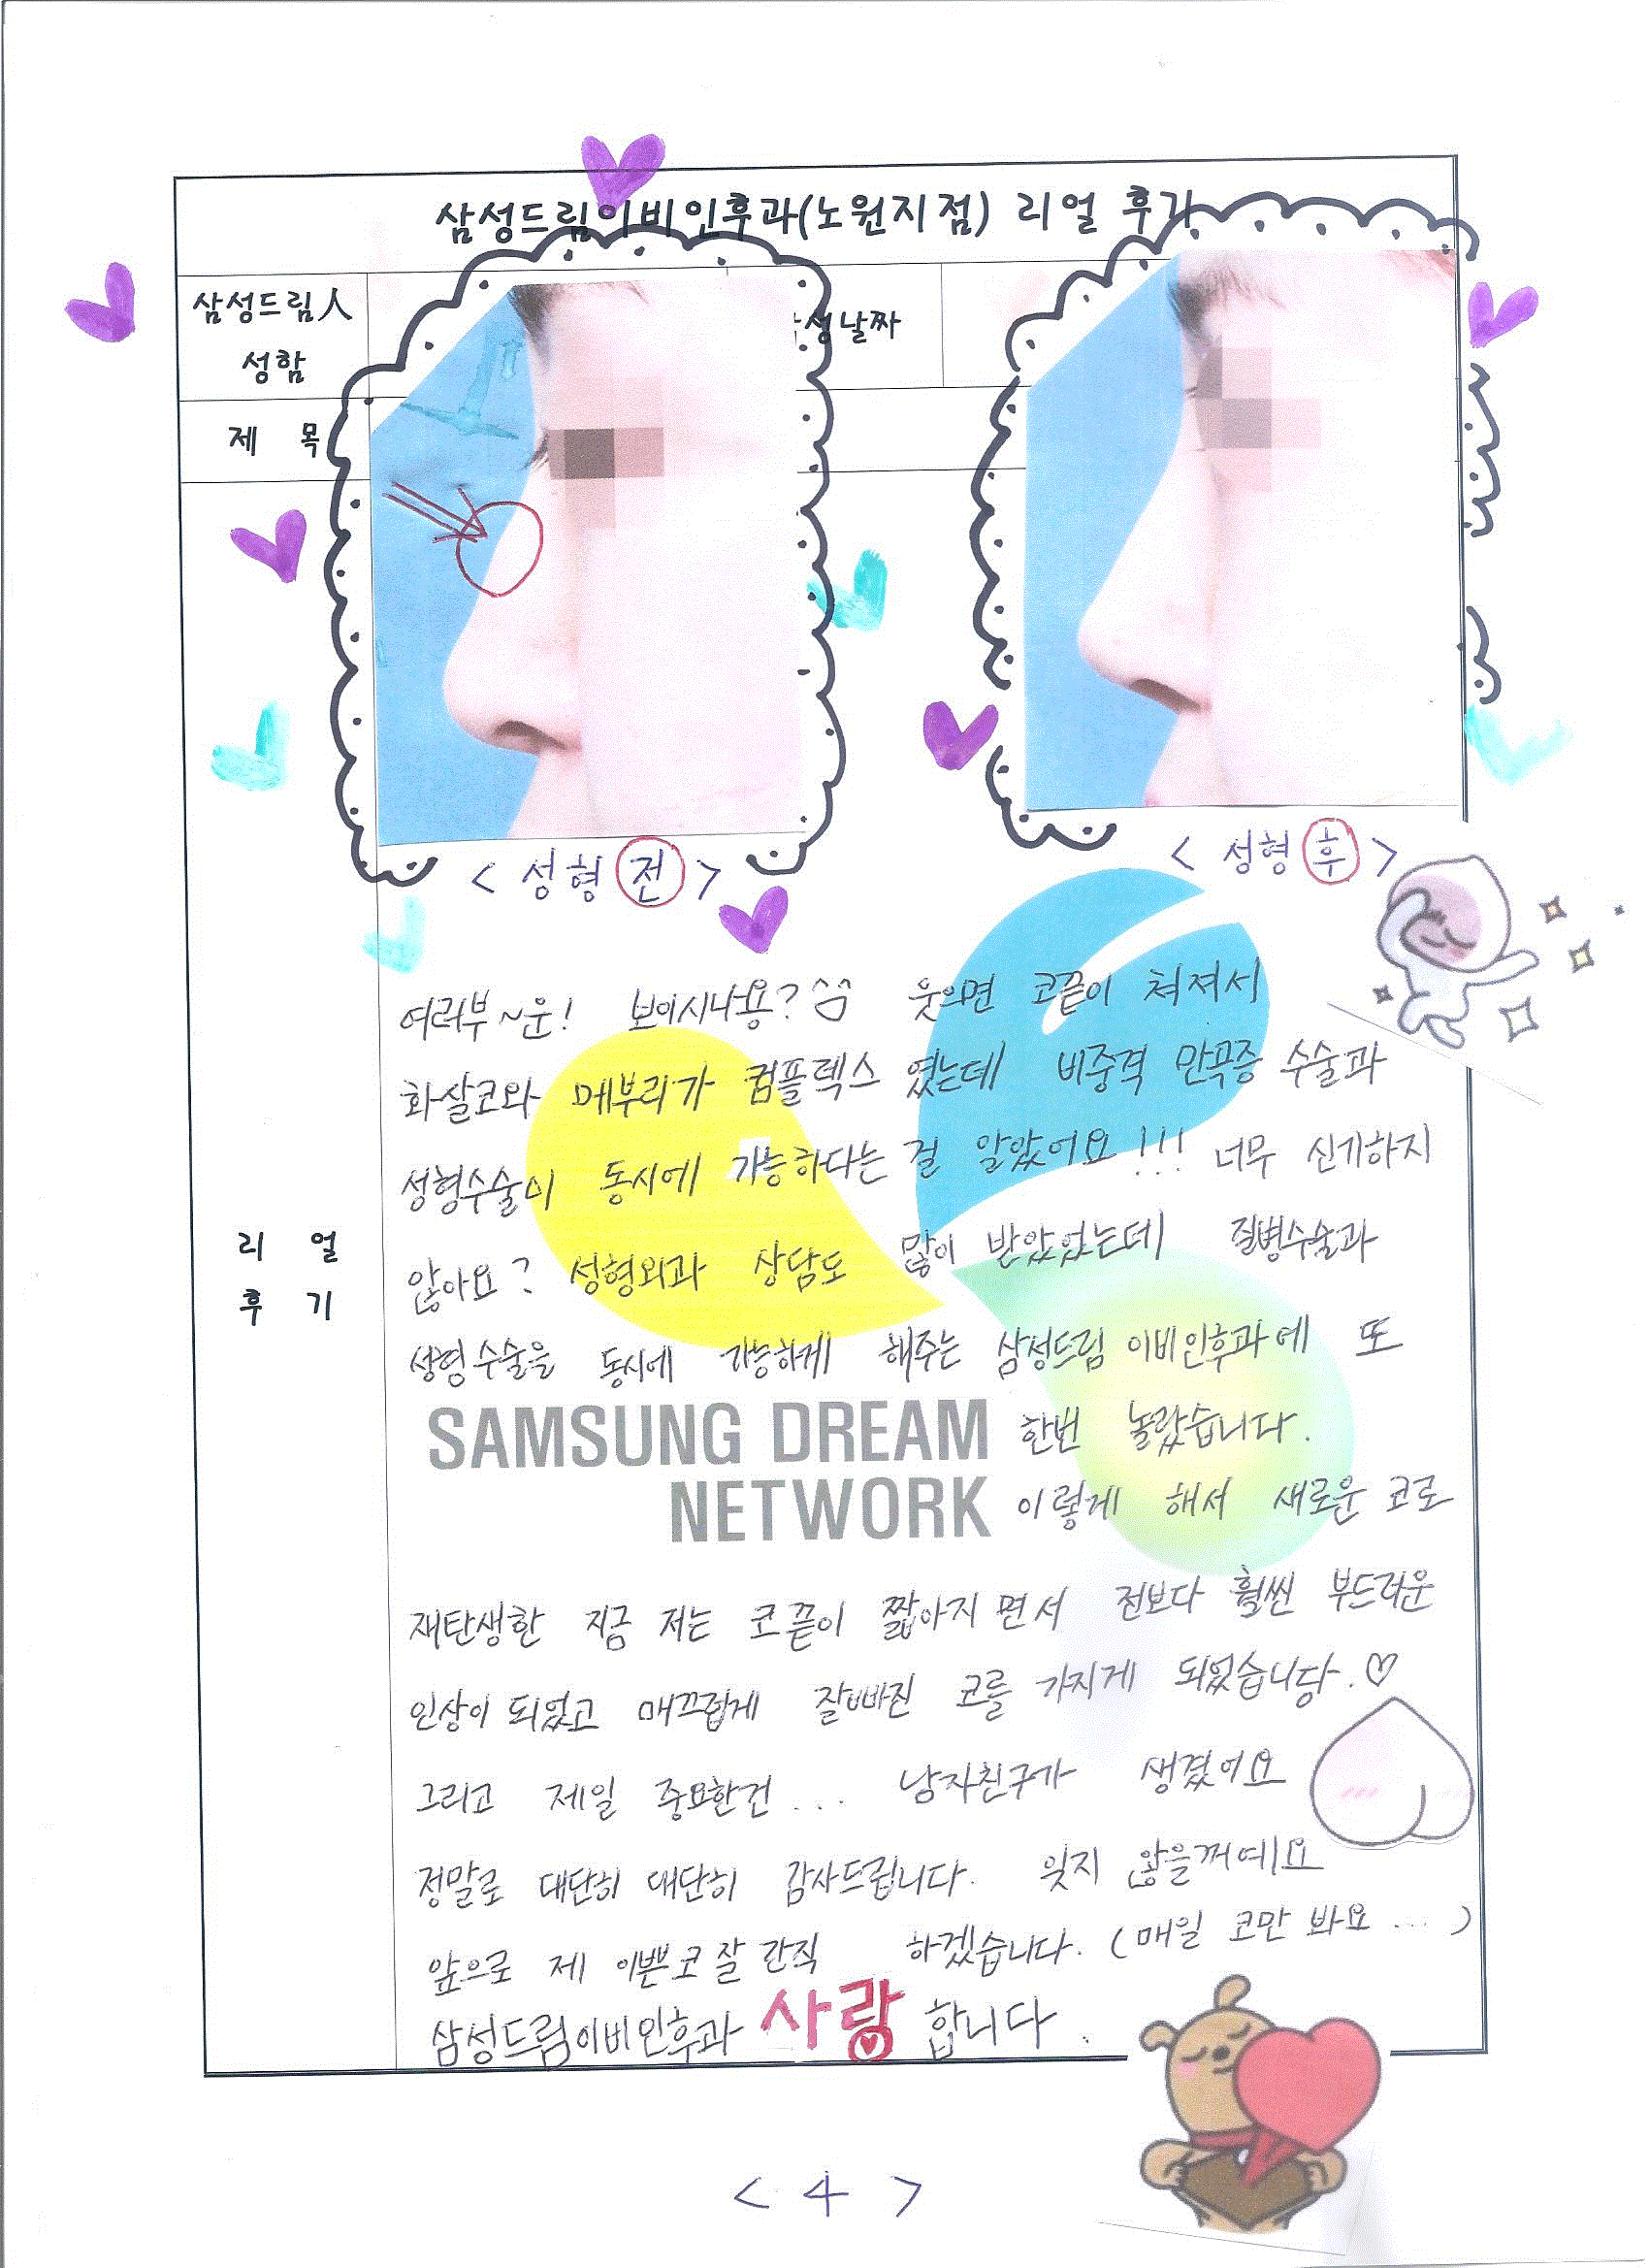 삼성드림이비인후과(노원지점) 리얼 후기
삼성드림人
성함
성날짜
제 목
< 성형 전 >
< 성형 후 >
여러부~운! 보이시나용?^^ 웃으면 코끝이 쳐져서
화살코와 메부리가 컴플렉스 였는데 비중격 만곡증 수술과
성형수술이 동시에 가능하다는 걸 알았어요!!! 너무 신기하지
않아요? 성형외과 상담도 많이 받았었는데 질병수술과
성형수술을 동시에 가능하게 해주는 삼성드림 이비인후과에 또
한번 놀랐습니다.
SAMSUNG DREAM
NETWORK
이렇게 해서 새로운 코로
재탄생한 지금 저는 코끝이 짧아지면서 전보다 훨씬 부드러운
인상이 되었고 매끄럽게 잘빠진 코를 가지게 되었습니당.♡
그리고 제일 중요한건... 남자친구가 생겼어요
정말로 대단히 대단히 감사드립니다. 잊지 않을꺼예요
앞으로 제 이쁜코 잘 간직 하겠습니다. (매일 코만 봐요...)
삼성드림이비인후과 사랑 합니다.
리 얼
후 기
< 4 >